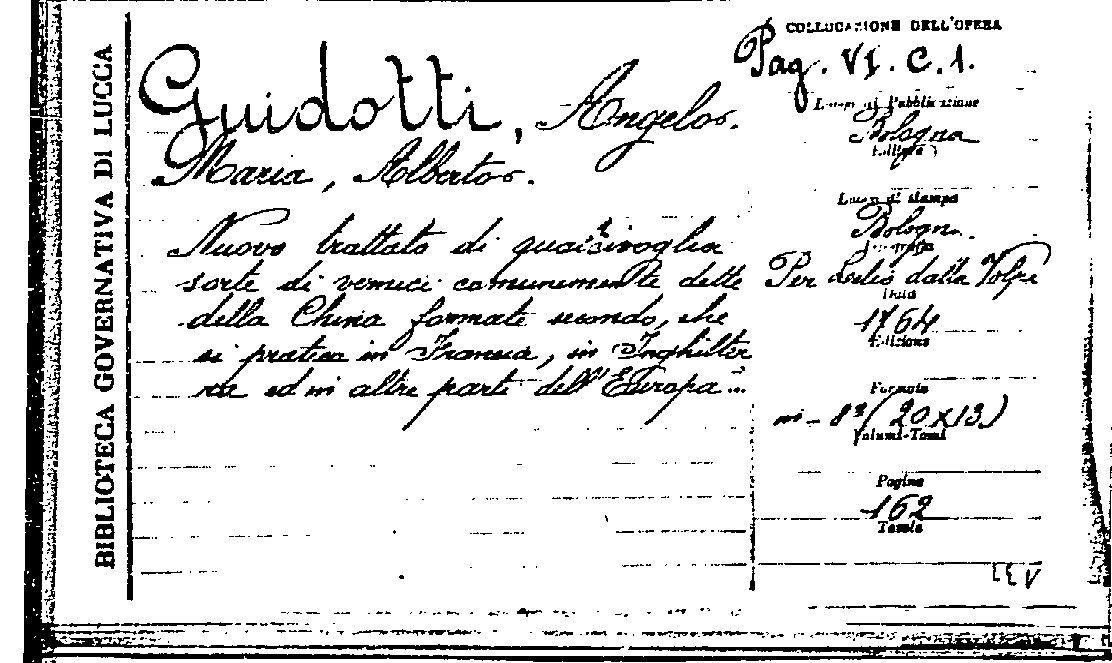 BIBLIOTECA GOVERNATIVA DI LUCCA
Guidotti, Angelo.
Maria, Alberto.
Nuovo trattato di qualsivoglia
sorte di vernici comunemente dette
della China formate secondo, che
si pratica in Francia, in Inghilter
ra ed in altre parte dell'Europa...
COLLOCAZIONE DELL'OPERA
Pag. VI. C. 1.
Luogo di Pubblicazione
Bologna
Editore
Luogo di stampa
Bologna.
Per Lelio dalla Volpe
Data
1764
Edizione
Formato
in - 8° (20x13)
Volumi-Tomi
Pagine
162
Tavole